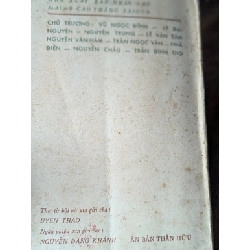 CHỦ TRƯƠNG: VŨ NGỌC ĐÌNH — LÊ
NGUYÊN — NGUYÊN TRUNG — LÊ VĂN
NGUYỄN VĂN HÀM — TRẦN NGỌC VÂN — NHÃ
ĐIỀN — NGUYỄN CHÂU — TRẦN ĐÌNH THỌ
Thư từ bài vở xin gửi cho:
UYÊN THAO
Ngân phiếu xin gửi cho:
NGUYỄN ĐĂNG KHÁNH ẤN BẢN THÂN HỮU